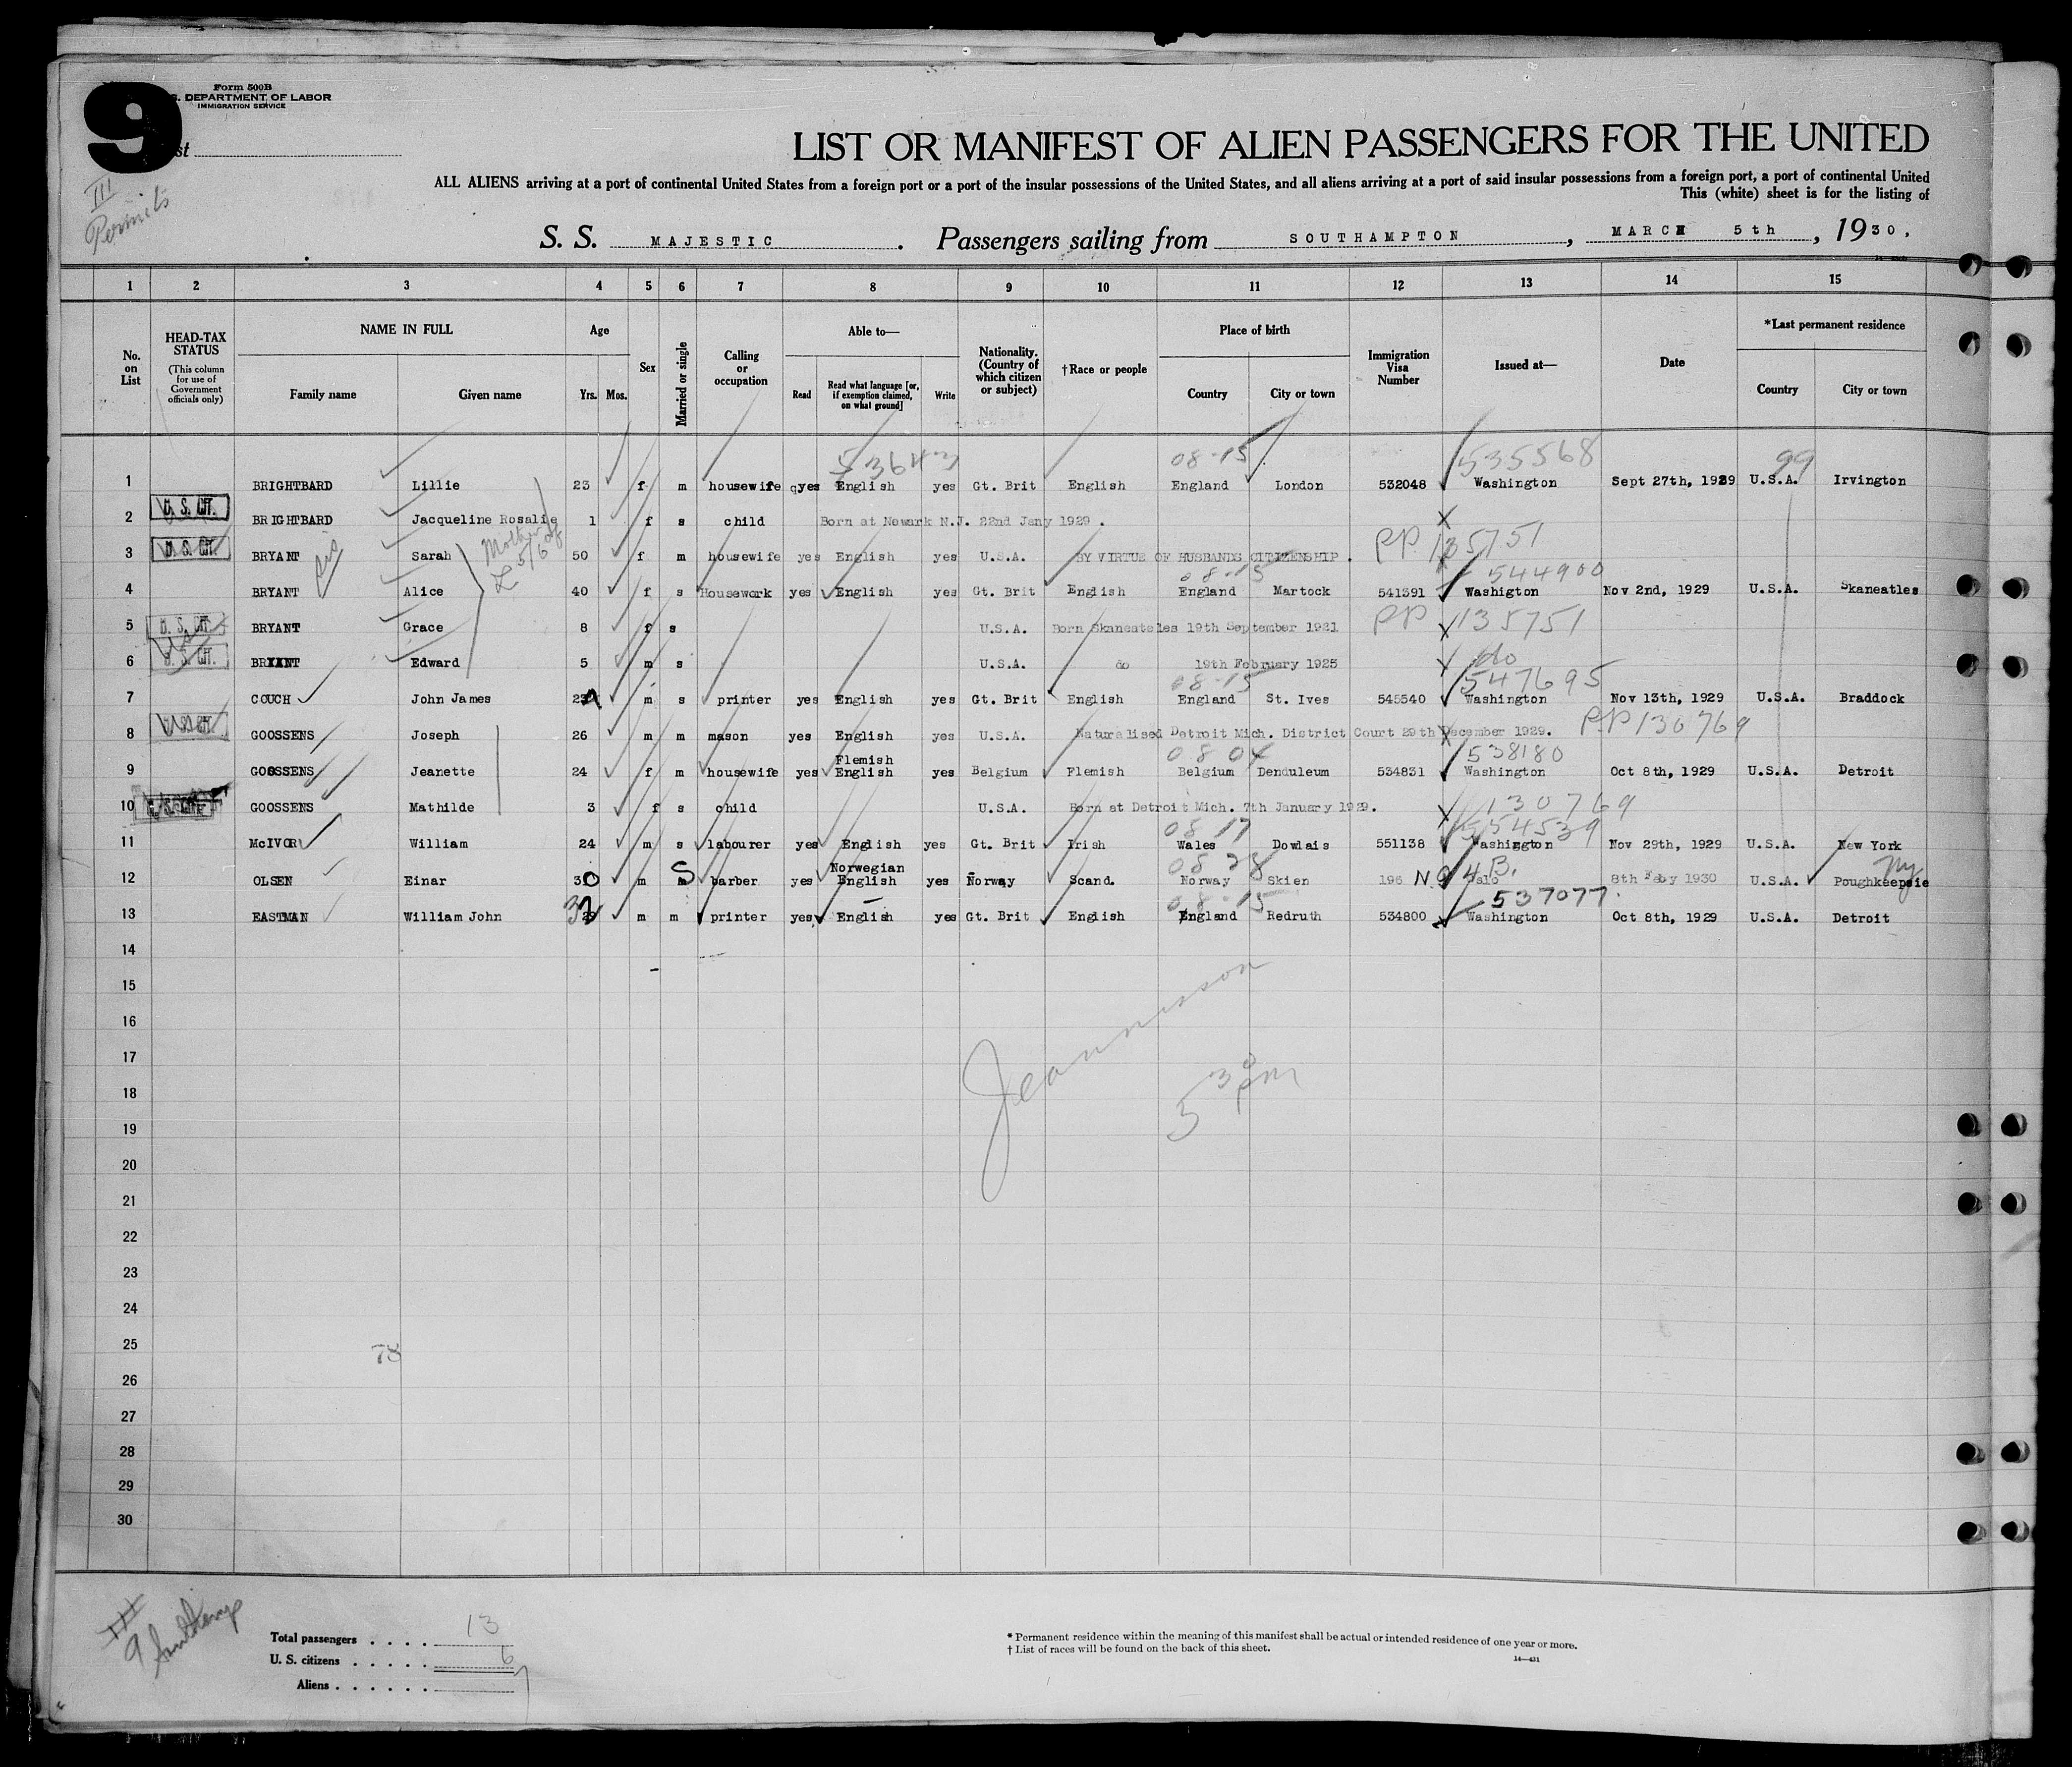 9
Form 500B
S. DEPARTMENT OF LABOR
IMMIGRATION SERVICE
st
III
Permits
LIST OR MANIFEST OF ALIEN PASSENGERS FOR THE UNITED
ALL ALIENS arriving at a port of continental United States from a foreign port or a port of the insular possessions of the United States, and all aliens arriving at a port of said insular possessions from a foreign port, a port of continental United
This (white) sheet is for the listing of
S. S. MAJESTIC . Passengers sailing from SOUTHAMPTON , MARCH 5th , 1930.
1 2 3 4 5 6 7 8 9 10 11 12 13 14 15
No. on List
HEAD-TAX STATUS (This column for use of Government officials only)
NAME IN FULL
Family name Given name
Age
Yrs. Mos.
Sex
Married or single
Calling or occupation
Able to—
Read Read what language [or, if exemption claimed, on what ground] Write
Nationality. (Country of which citizen or subject)
†Race or people
Place of birth
Country City or town
Immigration Visa Number
Issued at—
Date
*Last permanent residence
Country City or town
53643 08-15 535568 99
1 BRIGHTBARD Lillie 23 f m housewife yes English yes Gt. Brit English England London 532048 Washington Sept 27th, 1929 U.S.A. Irvington
2 U. S. CIT. BRIGHTBARD Jacqueline Rosalie 1 f s child Born at Newark N.J. 22nd Jany 1929. X
Mother of
L 5/6
3 U. S. CIT. BRYANT Sarah 50 f m housewife yes English yes U.S.A. BY VIRTUE OF HUSBANDS CITIZENSHIP. PP 135751
sis
08-15 544900
4 BRYANT Alice 40 f s Housework yes English yes Gt. Brit English England Martock 541391 Washigton Nov 2nd, 1929 U.S.A. Skaneatles
5 U. S. CIT. BRYANT Grace 8 f s U.S.A. Born Skaneateles 19th September 1921 PP X 135751
6 U. S. CIT. BRYANT Edward 5 m s U.S.A. do 19th February 1925 X do
08-15 547695
7 COUCH John James 23 m s printer yes English yes Gt. Brit English England St. Ives 545540 Washington Nov 13th, 1929 U.S.A. Braddock
8 U.S.CIT. GOOSSENS Joseph 26 m m mason yes English yes U.S.A. Naturalised Detroit Mich. District Court 29th December 1929. PP 130769
Flemish 08 04 538180
9 GOOSSENS Jeanette 24 f m housewife yes English yes Belgium Flemish Belgium Denduleum 534831 Washington Oct 8th, 1929 U.S.A. Detroit
10 GOOSSENS Mathilde 3 f s child U.S.A. Born at Detroit Mich. 7th January 1929. X 130769
08 17 554539
11 McIVOR William 24 m s labourer yes English yes Gt. Brit Irish Wales Dowlais 551138 Washington Nov 29th, 1929 U.S.A. New York
Norwegian 08 28 4B. Ny
12 OLSEN Einar 30 m S barber yes English yes Norway Scand. Norway Skien 196 8th Feby 1930 U.S.A. Poughkeepsie
08-15 537077
13 EASTMAN William John 32 m m printer yes English yes Gt. Brit English England Redruth 534800 Washington Oct 8th, 1929 U.S.A. Detroit
14
15
16
17
18
19
20
21
22
23
24
25
26
27
28
29
30
5 30 pm
78
III
9 Southamp
Total passengers . . . . 13
U. S. citizens . . . . . 6
Aliens . . . . . . 7
* Permanent residence within the meaning of this manifest shall be actual or intended residence of one year or more.
† List of races will be found on the back of this sheet.
14—431